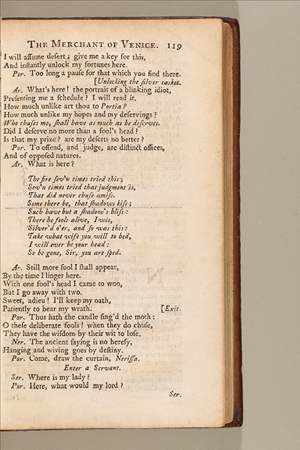 THE MERCHANT OF VENICE. 119
I will assume desert; give me a key for this,
And instantly unlock my fortunes here.
Por. Too long a pause for that which you find there.
[Unlocking the silver casket.
Ar. What's here! the portrait of a blinking idiot,
Presenting me a schedule? I will read it.
How much unlike art thou to Portia?
How much unlike my hopes and my deservings?
Who chuses me, shall have as much as he deserves.
Did I deserve no more than a fool's head?
Is that my prize? are my deserts no better?
Por. To offend, and judge, are distinct offices,
And of opposed natures.
Ar. What is here?
The fire sev'n times tried this;
Sev'n times tried that judgment is,
That did never chuse amiss.
Some there be, that shadows kiss;
Such have but a shadow's bliss:
There be fools alive, I wis,
Silver'd o'er, and so was this:
Take what wife you will to bed,
I will ever be your head:
So be gone, Sir, you are sped.
Ar. Still more fool I shall appear,
By the time I linger here.
With one fool's head I came to woo,
But I go away with two.
Sweet, adieu! I'll keep my oath,
Patiently to bear my wrath. [Exit.
Por. Thus hath the candle sing'd the moth:
O these deliberate fools! when they do chuse,
They have the wisdom by their wit to lose,
Ner. The ancient saying is no heresy,
Hanging and wiving goes by destiny.
Por. Come, draw the curtain, Nerissa.
Enter a Servant.
Ser. Where is my lady?
Por. Here, what would my lord?
Ser.